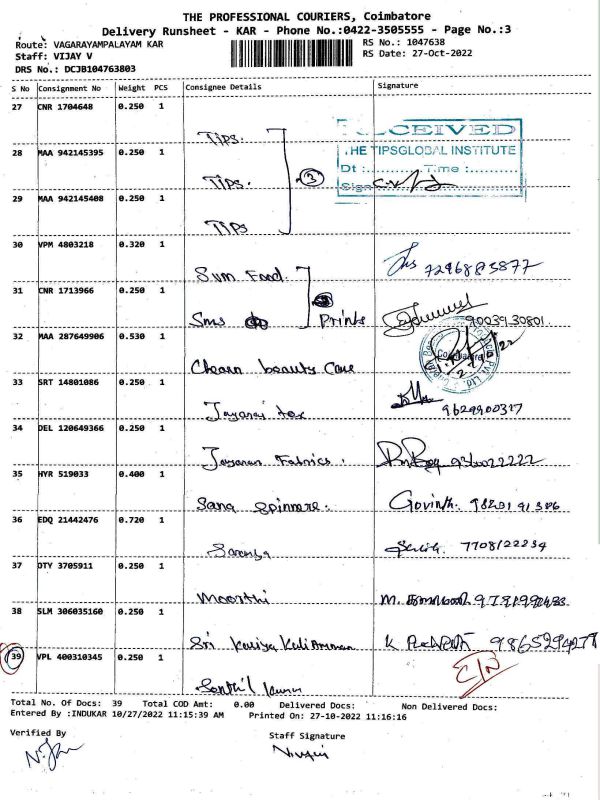 THE PROFESSIONAL COURIERS, Coimbatore
Delivery Runsheet - KAR - Phone No.:0422-3505555 - Page No.:3
Route: VAGARAYAMPALAYAM KAR RS No.: 1047638
Staff: VIJAY V RS Date: 27-Oct-2022
DRS No.: DCJB104763803
S No Consignment No Weight PCS Consignee Details Signature
27 CNR 1704648 0.250 1
Tips. RECEIVED
28 MAA 942145395 0.250 1 THE TIPSGLOBAL INSTITUTE
Tips. 3 Dt :.......... Time :..........
29 MAA 942145408 0.250 1 Sign
Tips
30 VPM 4803218 0.320 1
Sum Food 7296883877
31 CNR 1713966 0.250 1
Sms Prints 9003930801
32 MAA 287649906 0.530 1 Coimbatore
beauty Care
33 SRT 14801086 0.250 1
Tex 9629900317
34 DEL 120649366 0.250 1
Fabrics. 9360022222
35 HYR 519033 0.400 1
Sana Govinth.
36 EDQ 21442476 0.720 1
7708122234
37 OTY 3705911 0.250 1
Moorthi M.
38 SLM 306035160 0.250 1
Sri Kaliamman K 9865294278
39 VPL 400310345 0.250 1 C/N
Senthil
Total No. Of Docs: 39 Total COD Amt: 0.00 Delivered Docs: Non Delivered Docs:
Entered By :INDUKAR 10/27/2022 11:15:39 AM Printed On: 27-10-2022 11:16:16
Verified By Staff Signature